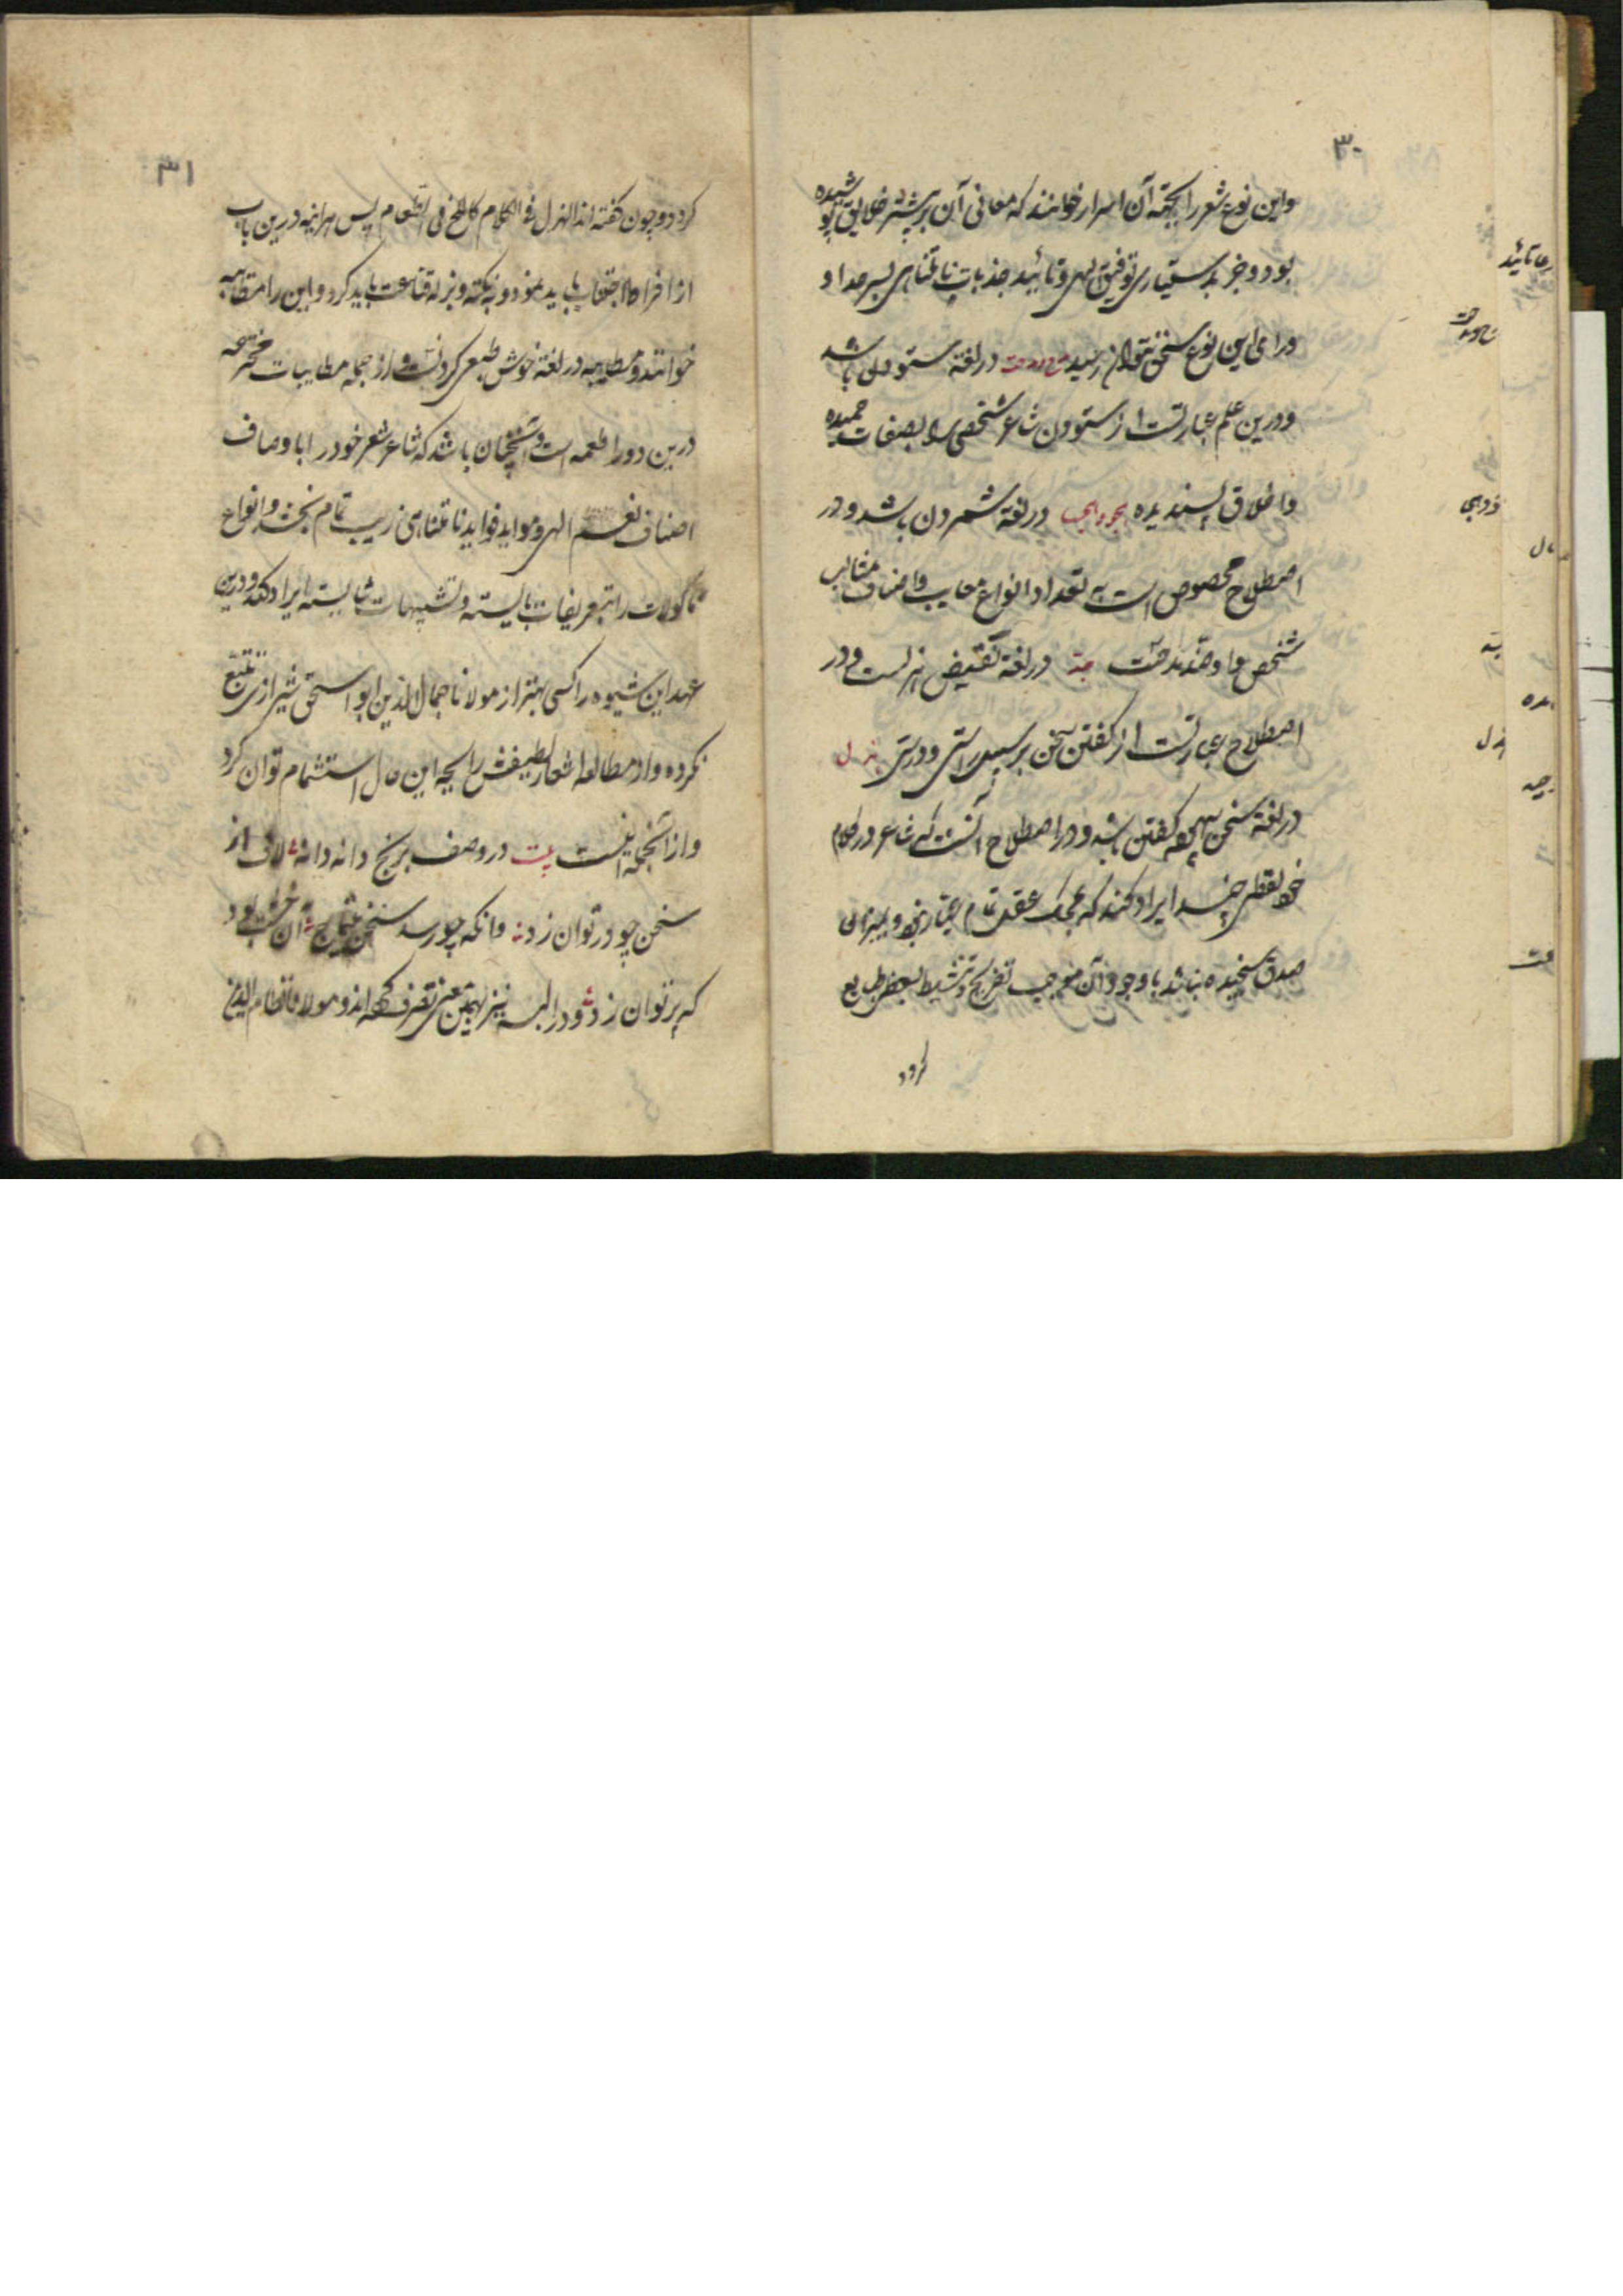 ۳۰
واین نوع شعر را بجهة آن اسرار خوانند که معانی آن بر بیشتر خلایق پوشیده
بود و جز بدستیاری توفیق الهی و تائید جذبات نامتناهی بسر حد ادا
ورای این نوع سخن نتوان رسید مدح و مدحت در لغة ستودن باشد
و درین علم عبارتست از ستودن شاعر شخصی را بصفات حمیده
و اخلاق پسندیده هجو و هجا در لغة شمردن باشد و در
اصطلاح مخصوص است به تعداد انواع معایب و اصناف مثالب
شخص و او ضد مدحت جدّ در لغة نقیض هزلست و در
اصطلاح عبارتست از گفتن سخن بر سبیل راستی و درستی هزل
در لغة سخن بیهوده گفتن باشد و در اصطلاح آنست که شاعر در کلام
خود لفظی چند ایراد کند که بمحک عقل تمام عیار نبود و بمیزان
صدق سنجیده نباشد با وجود آن موجب تفریح و تنشیط بعضی طبایع
گردد
۳۱
گردد و چون گفته اند الهزل فی الکلام کالملح فی الطعام پس هر اینه درین باب
از افراط اجتناب باید نمود و بنکته و بزله قناعت باید کرد و این را مطایبه
خوانند و مطایبه در لغة خوش طبعی کردنست و از جمله مطایبات مخترعه
درین دور اطعمه است و آنچنان باشد که شاعر شعر خود را باوصاف
اصناف نعیم الهی و مواید فواید نامتناهی زیب تمام بخشد و انواع
ماکولات را بتعریفات بایسته و تشبیهات شایسته ایراد کند و درین
عهد این شیوه را کسی بهتر از مولانا جمال الدین ابو اسحق شیرازی تتبع
نکرده و از مطالعه اشعار لطیفش رایحه این حال استشمام توان کرد
و از آنجمله اینست بیت در وصف برنج دانه دانه لاف از
سخن چو در توان زد وانکه چو رسد سخن آن خشت بود
که پر توان زد و در البسه نیز بهمین معنی تصرف کرده اند و مولانا نظام الدین